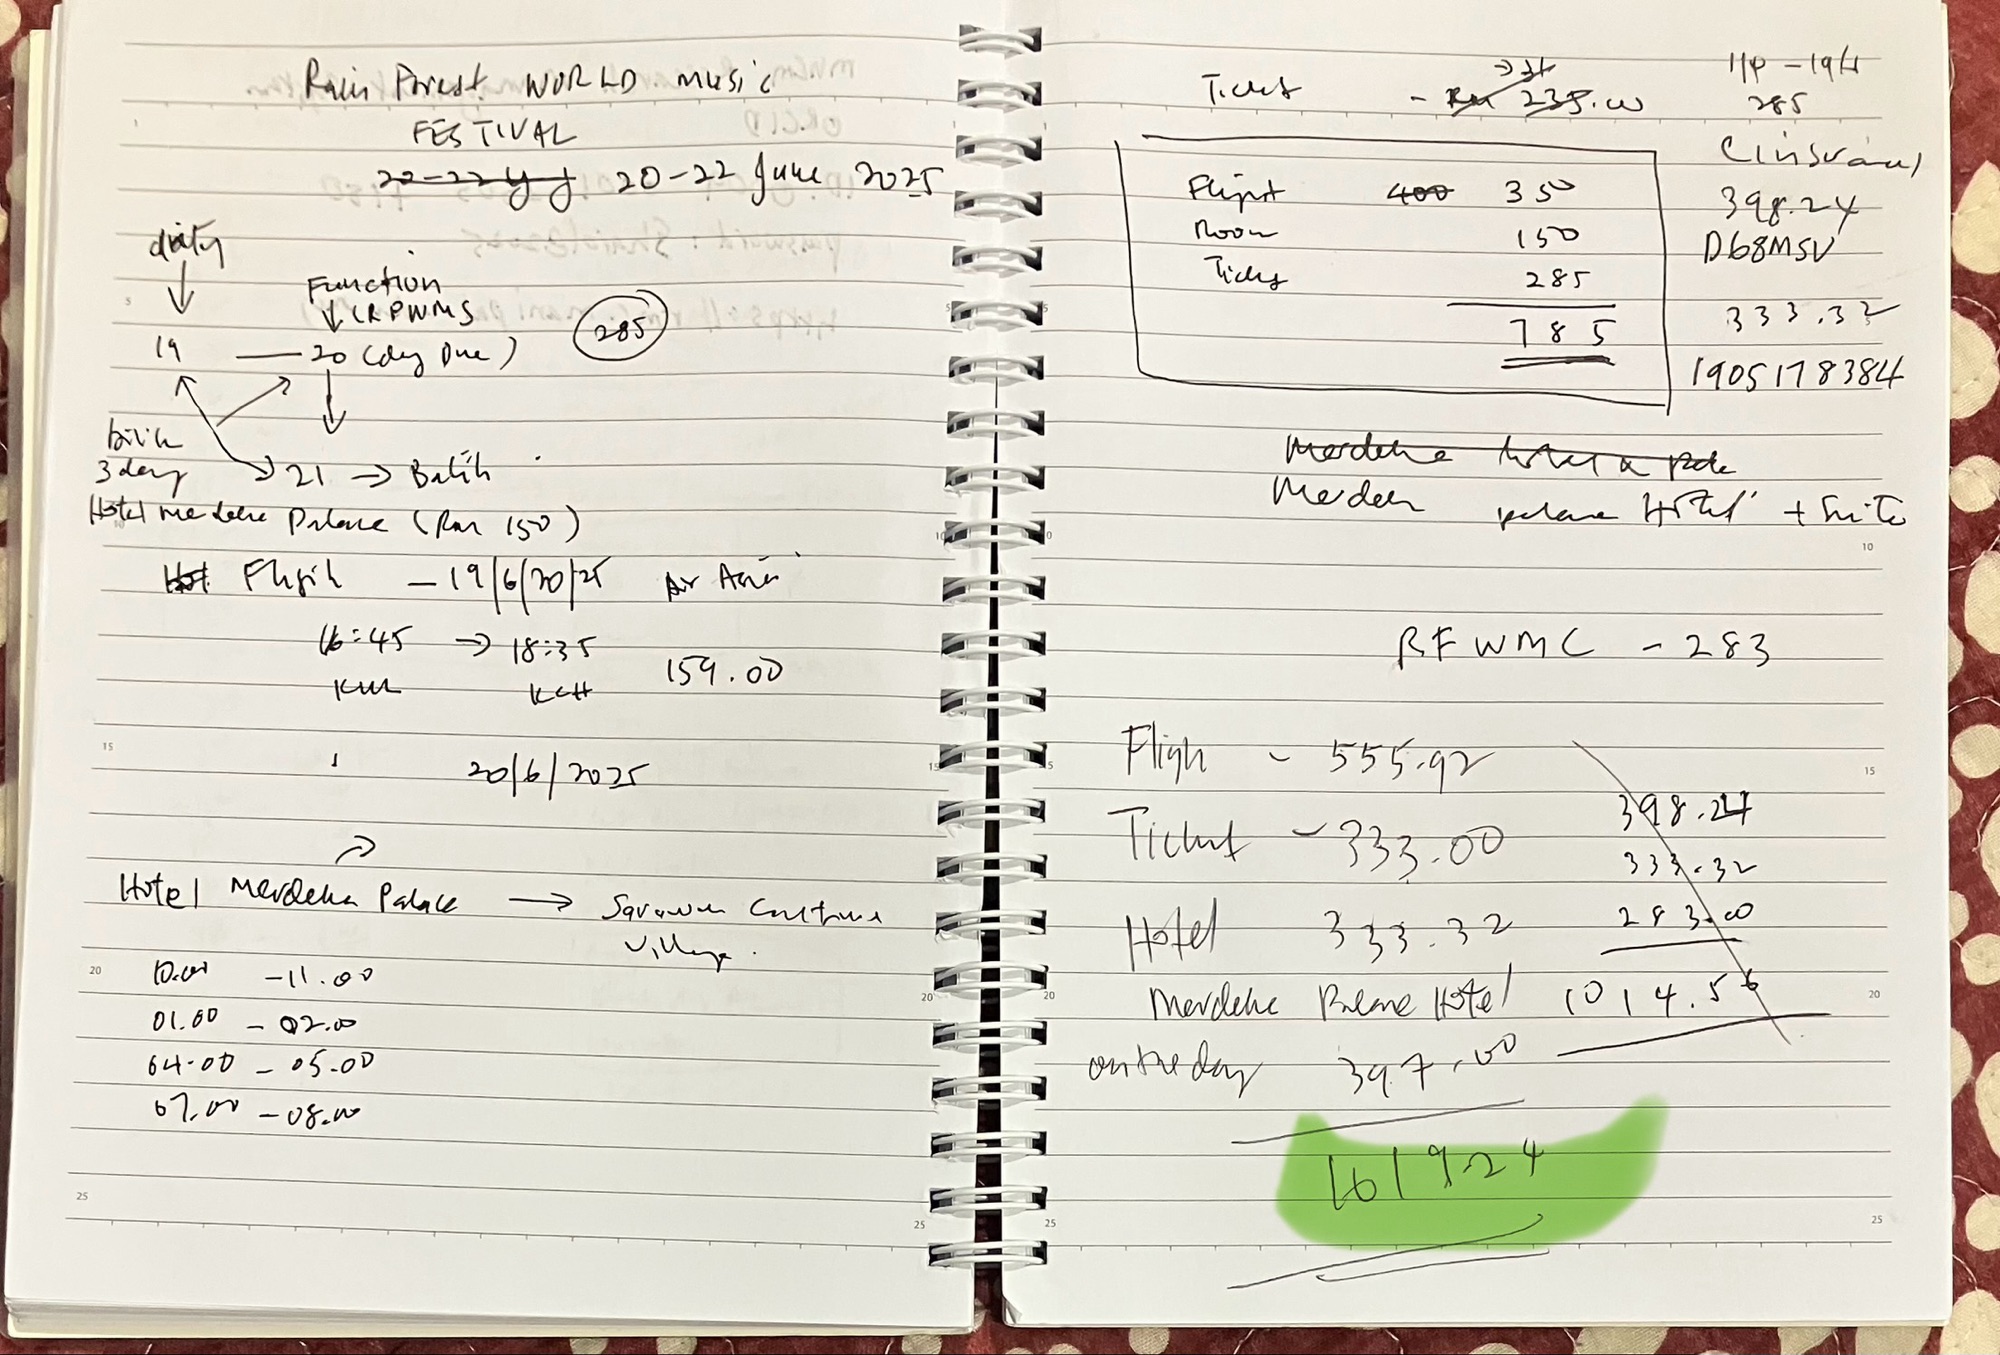 Rain Forest WORLD music
FESTIVAL
20-22 June 2025
Function
285
19 — 20 (day One)
3 day
21 → Balik
Hotel merdeka Palace (Rm 150)
Fligih - 19/6/20/25 Air Asia
16:45 → 18:35
159.00
KUL KCH
20/6/2025
Hotel Merdeka Palace → Sarawak Culture
Village.
10.00 - 11.00
01.00 - 02.00
04.00 - 05.00
07.00 - 08.00
Ticket - RM 235.00
285
Flight 400 350
Room 150
Ticket 285
785
398.24
D68MSV
333.32
1905178384
Merdeka palace Hotel + Suite
RFWMC - 283
Fligh - 555.92
Ticket - 333.00
Hotel 333.32
Merdeka Palace Hotel
on the day 397.00
1619.24
398.24
333.32
283.00
1014.56
5
10
15
20
25